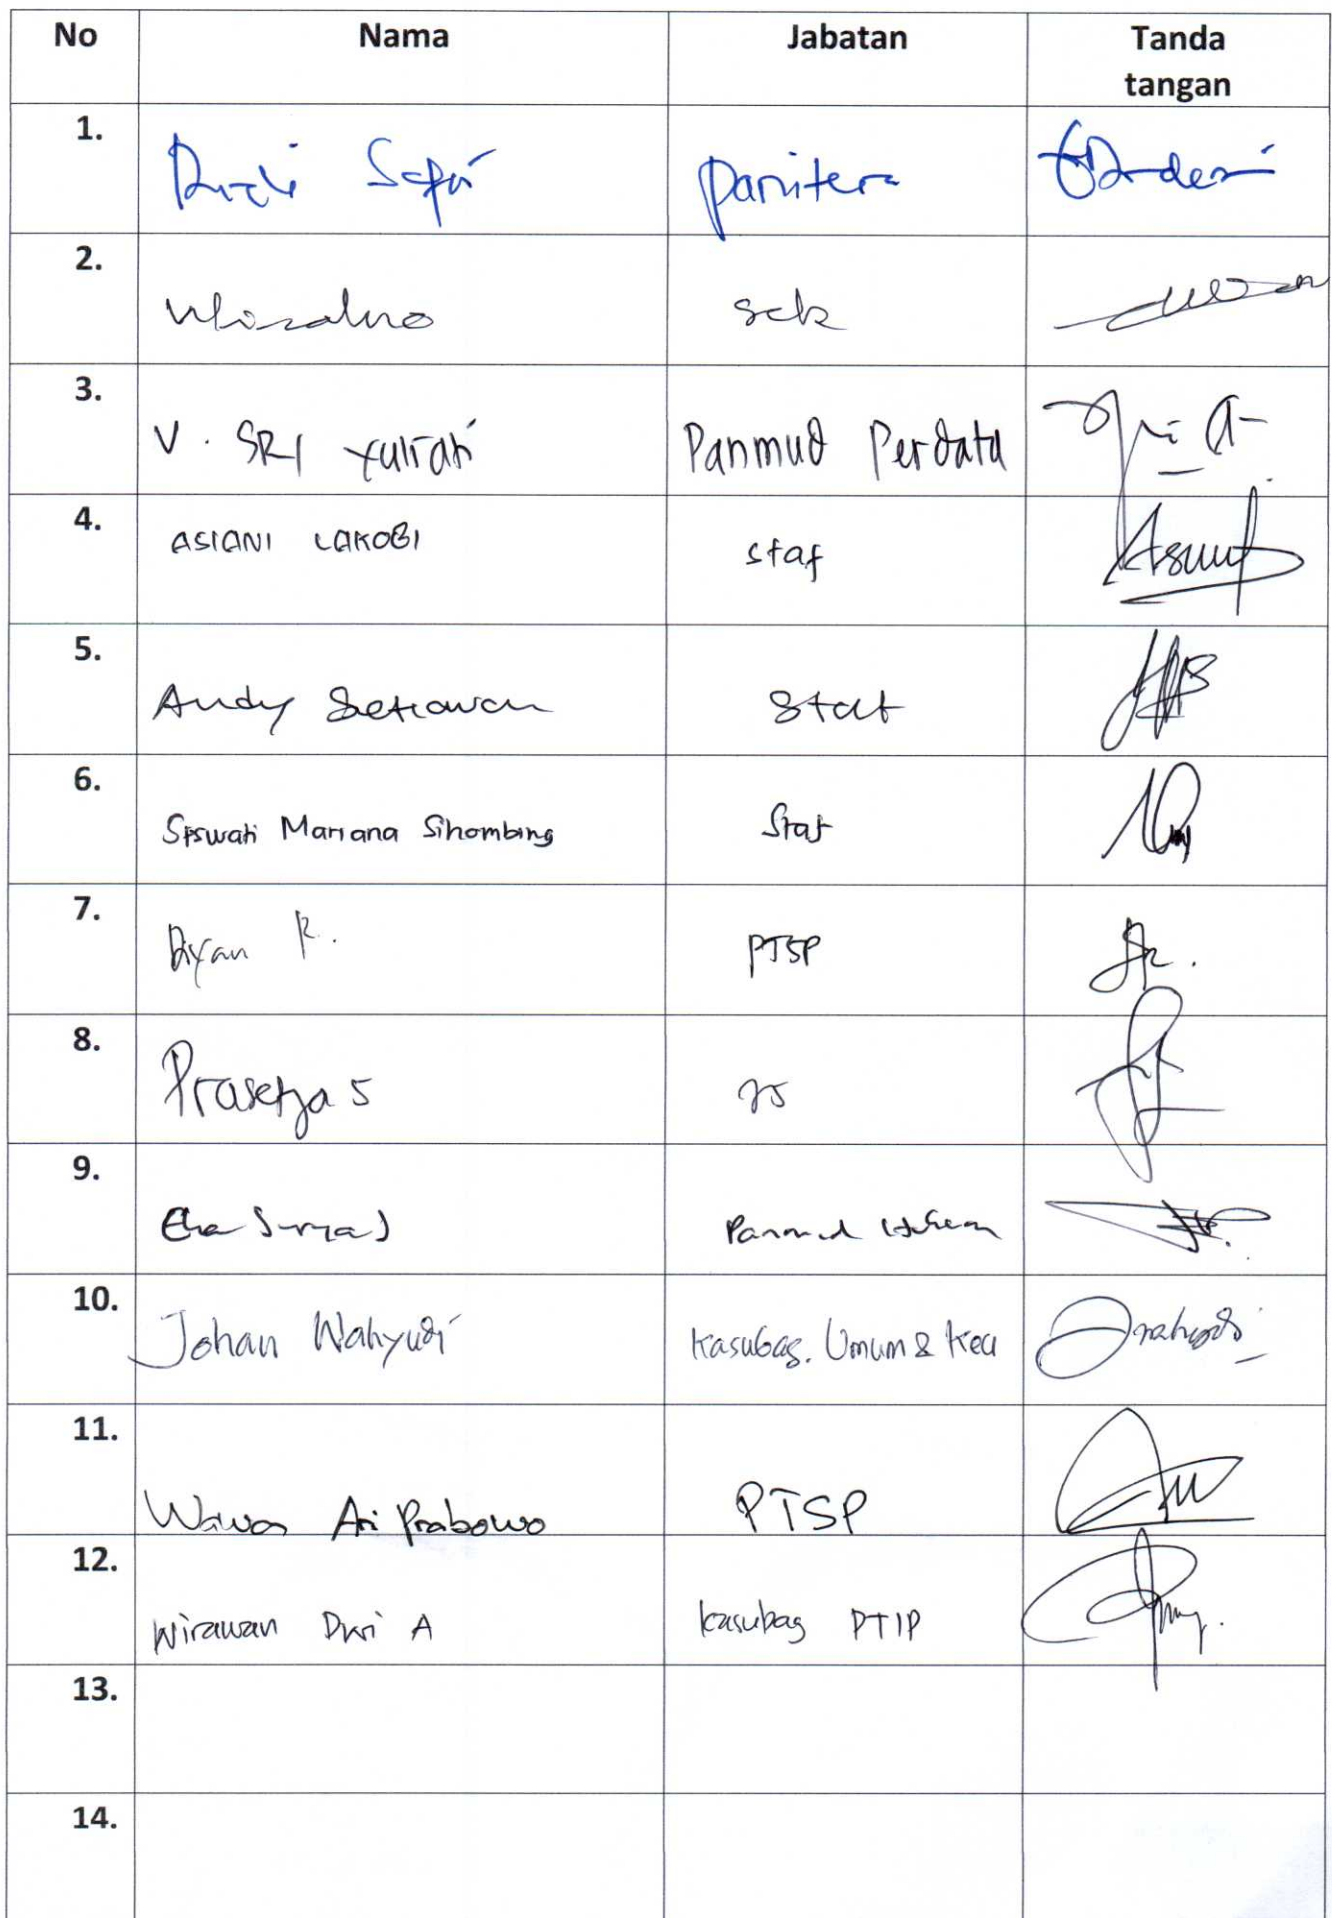 No Nama Jabatan Tanda
tangan
1. Panitera
2. Sek
3. V. SRI Yuliati Panmud Perdata
4. ASIANI LAKOBI Staf
5. Andy Setiawan Staf
6. Siswati Mariana Sihombing Staf
7. PTSP
8. Prasetya S JS
9. Eka Surya J Panmud Hukum
10. Johan Wahyudi Kasubag. Umum & Keu
11. Wawan Ari Prabowo PTSP
12. Wirawan Dwi A Kasubag PTIP
13.
14.